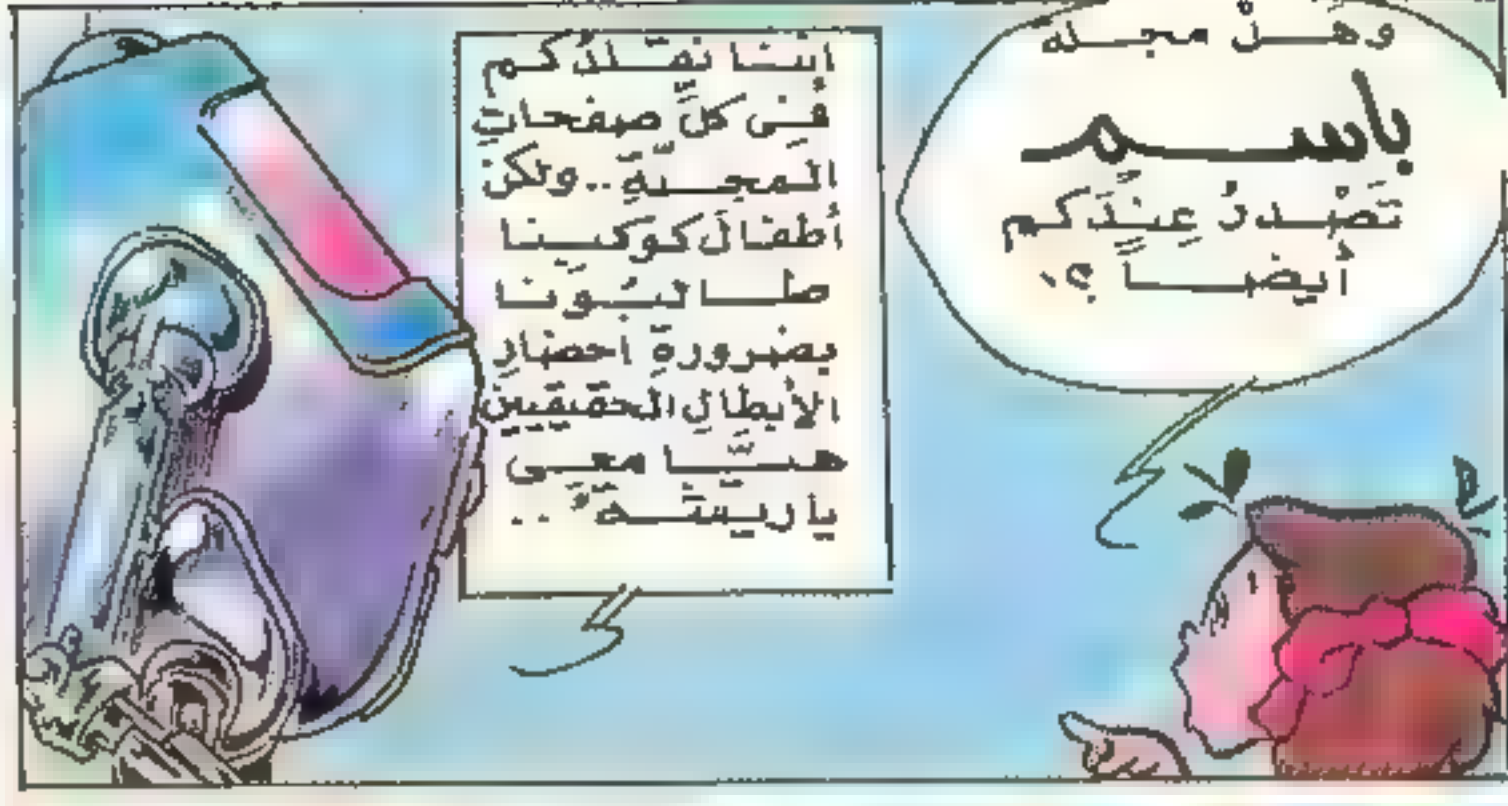 وهَـــلْ مجـــلة
باســـم
تَصْدرُ عِندَكم
أيضـــاً ؟.
إننـا نقـلدُكم
في كلِّ صفحاتِ
المجـلةِ.. ولكن
أطفالَ كوكبِـنا
طـالبُـونا
بضرورةِ احضارِ
الأبطالِ الحقيقيين
هـيَّـا معـى
ياريشـة ..